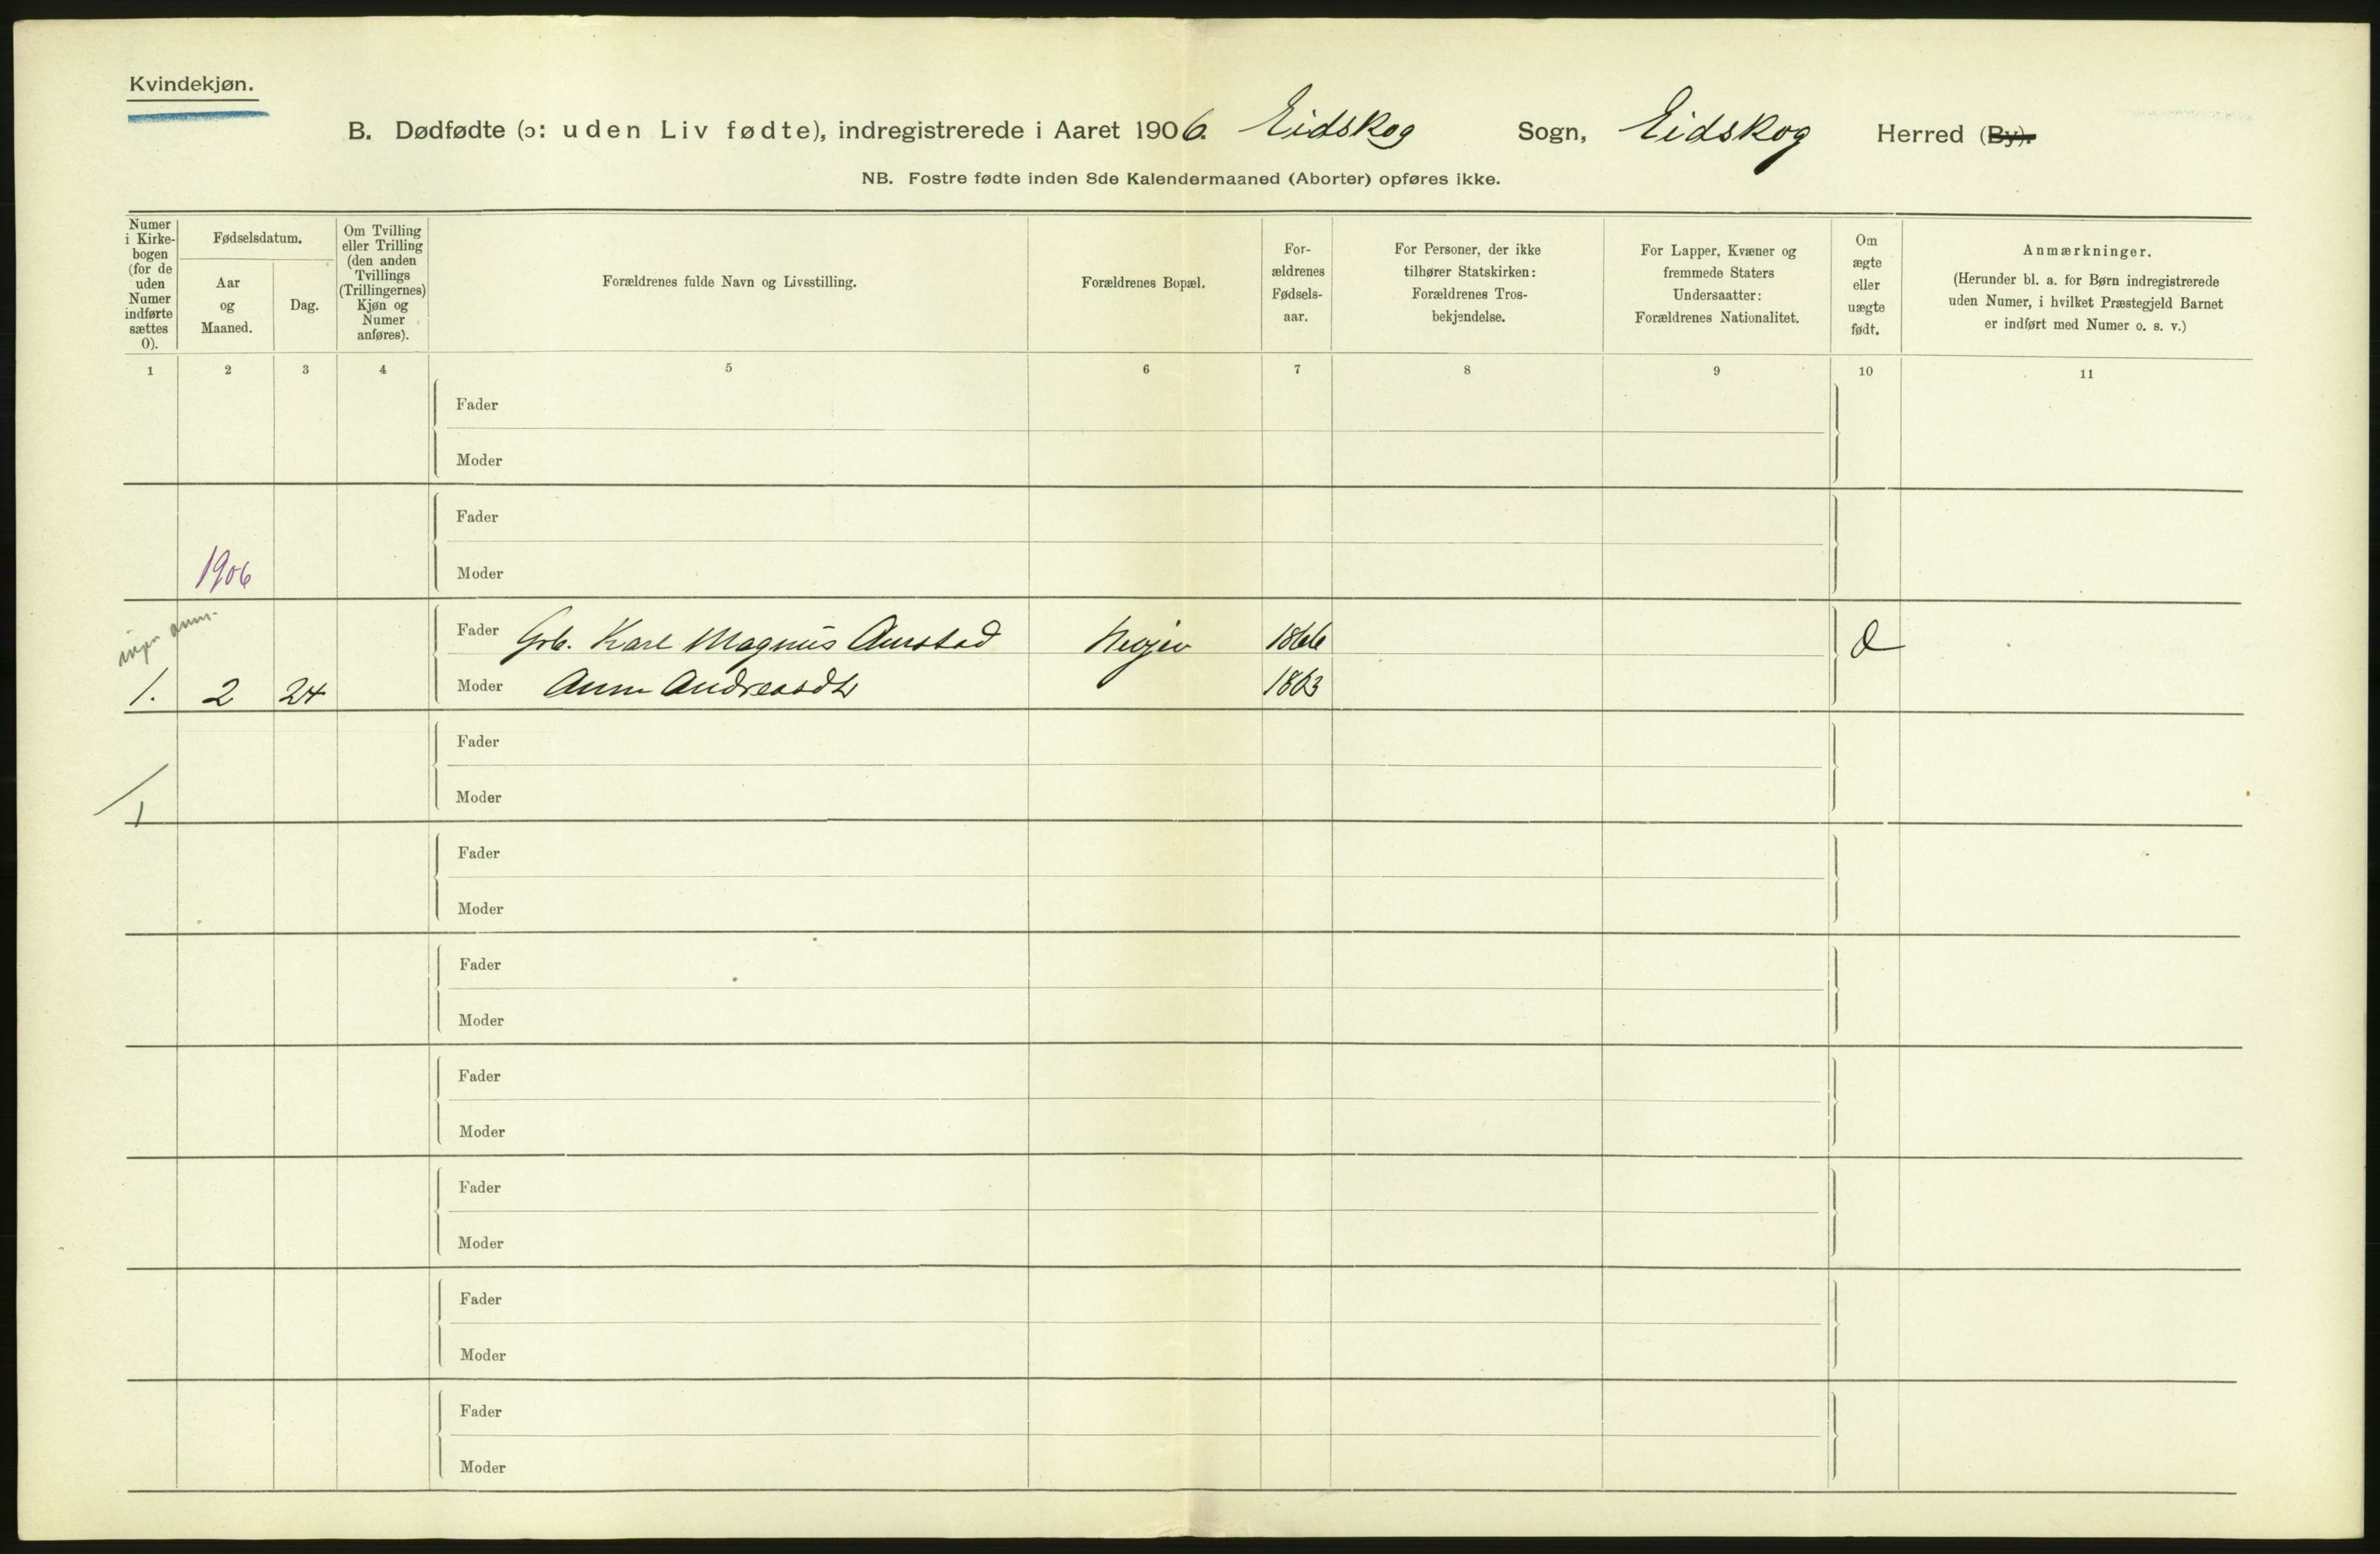 Kvindekjøn.
B. Dødfødte (ɔ: uden Liv fødte), indregistrerede i Aaret 1906. Eidskog Sogn, Eidskog Herred (By).
NB. Fostre fødte inden 8de Kalendermaaned (Aborter) opføres ikke.
Numer
i Kirke-
bogen
(for de
uden
Numer
indførte
sættes
0).
Fødselsdatum.
Aar
og
Maaned.
Dag.
Om Tvilling
eller Trilling
(den anden
Tvillings
(Trillingernes)
Kjøn og
Numer
anføres).
Forældrenes fulde Navn og Livsstilling.
Forældrenes Bopæl.
For-
ældrenes
Fødsels-
aar.
For Personer, der ikke
tilhører Statskirken:
Forældrenes Tros-
bekjendelse.
For Lapper, Kvæner og
fremmede Staters
Undersaatter:
Forældrenes Nationalitet.
Om
ægte
eller
uægte
født.
Anmærkninger.
(Herunder bl. a. for Børn indregistrerede
uden Numer, i hvilket Præstegjeld Barnet
er indført med Numer o. s. v.)
1 2 3 4 5 6 7 8 9 10 11
Fader
Moder
Fader
1906
Moder
ingen anm.
Fader Grb. Karl Magnus 1866
1. 2 24 Moder Anne Andreasdtr 1863
Fader
Moder
1
Fader
Moder
Fader
Moder
Fader
Moder
Fader
Moder
Fader
Moder
Fader
Moder